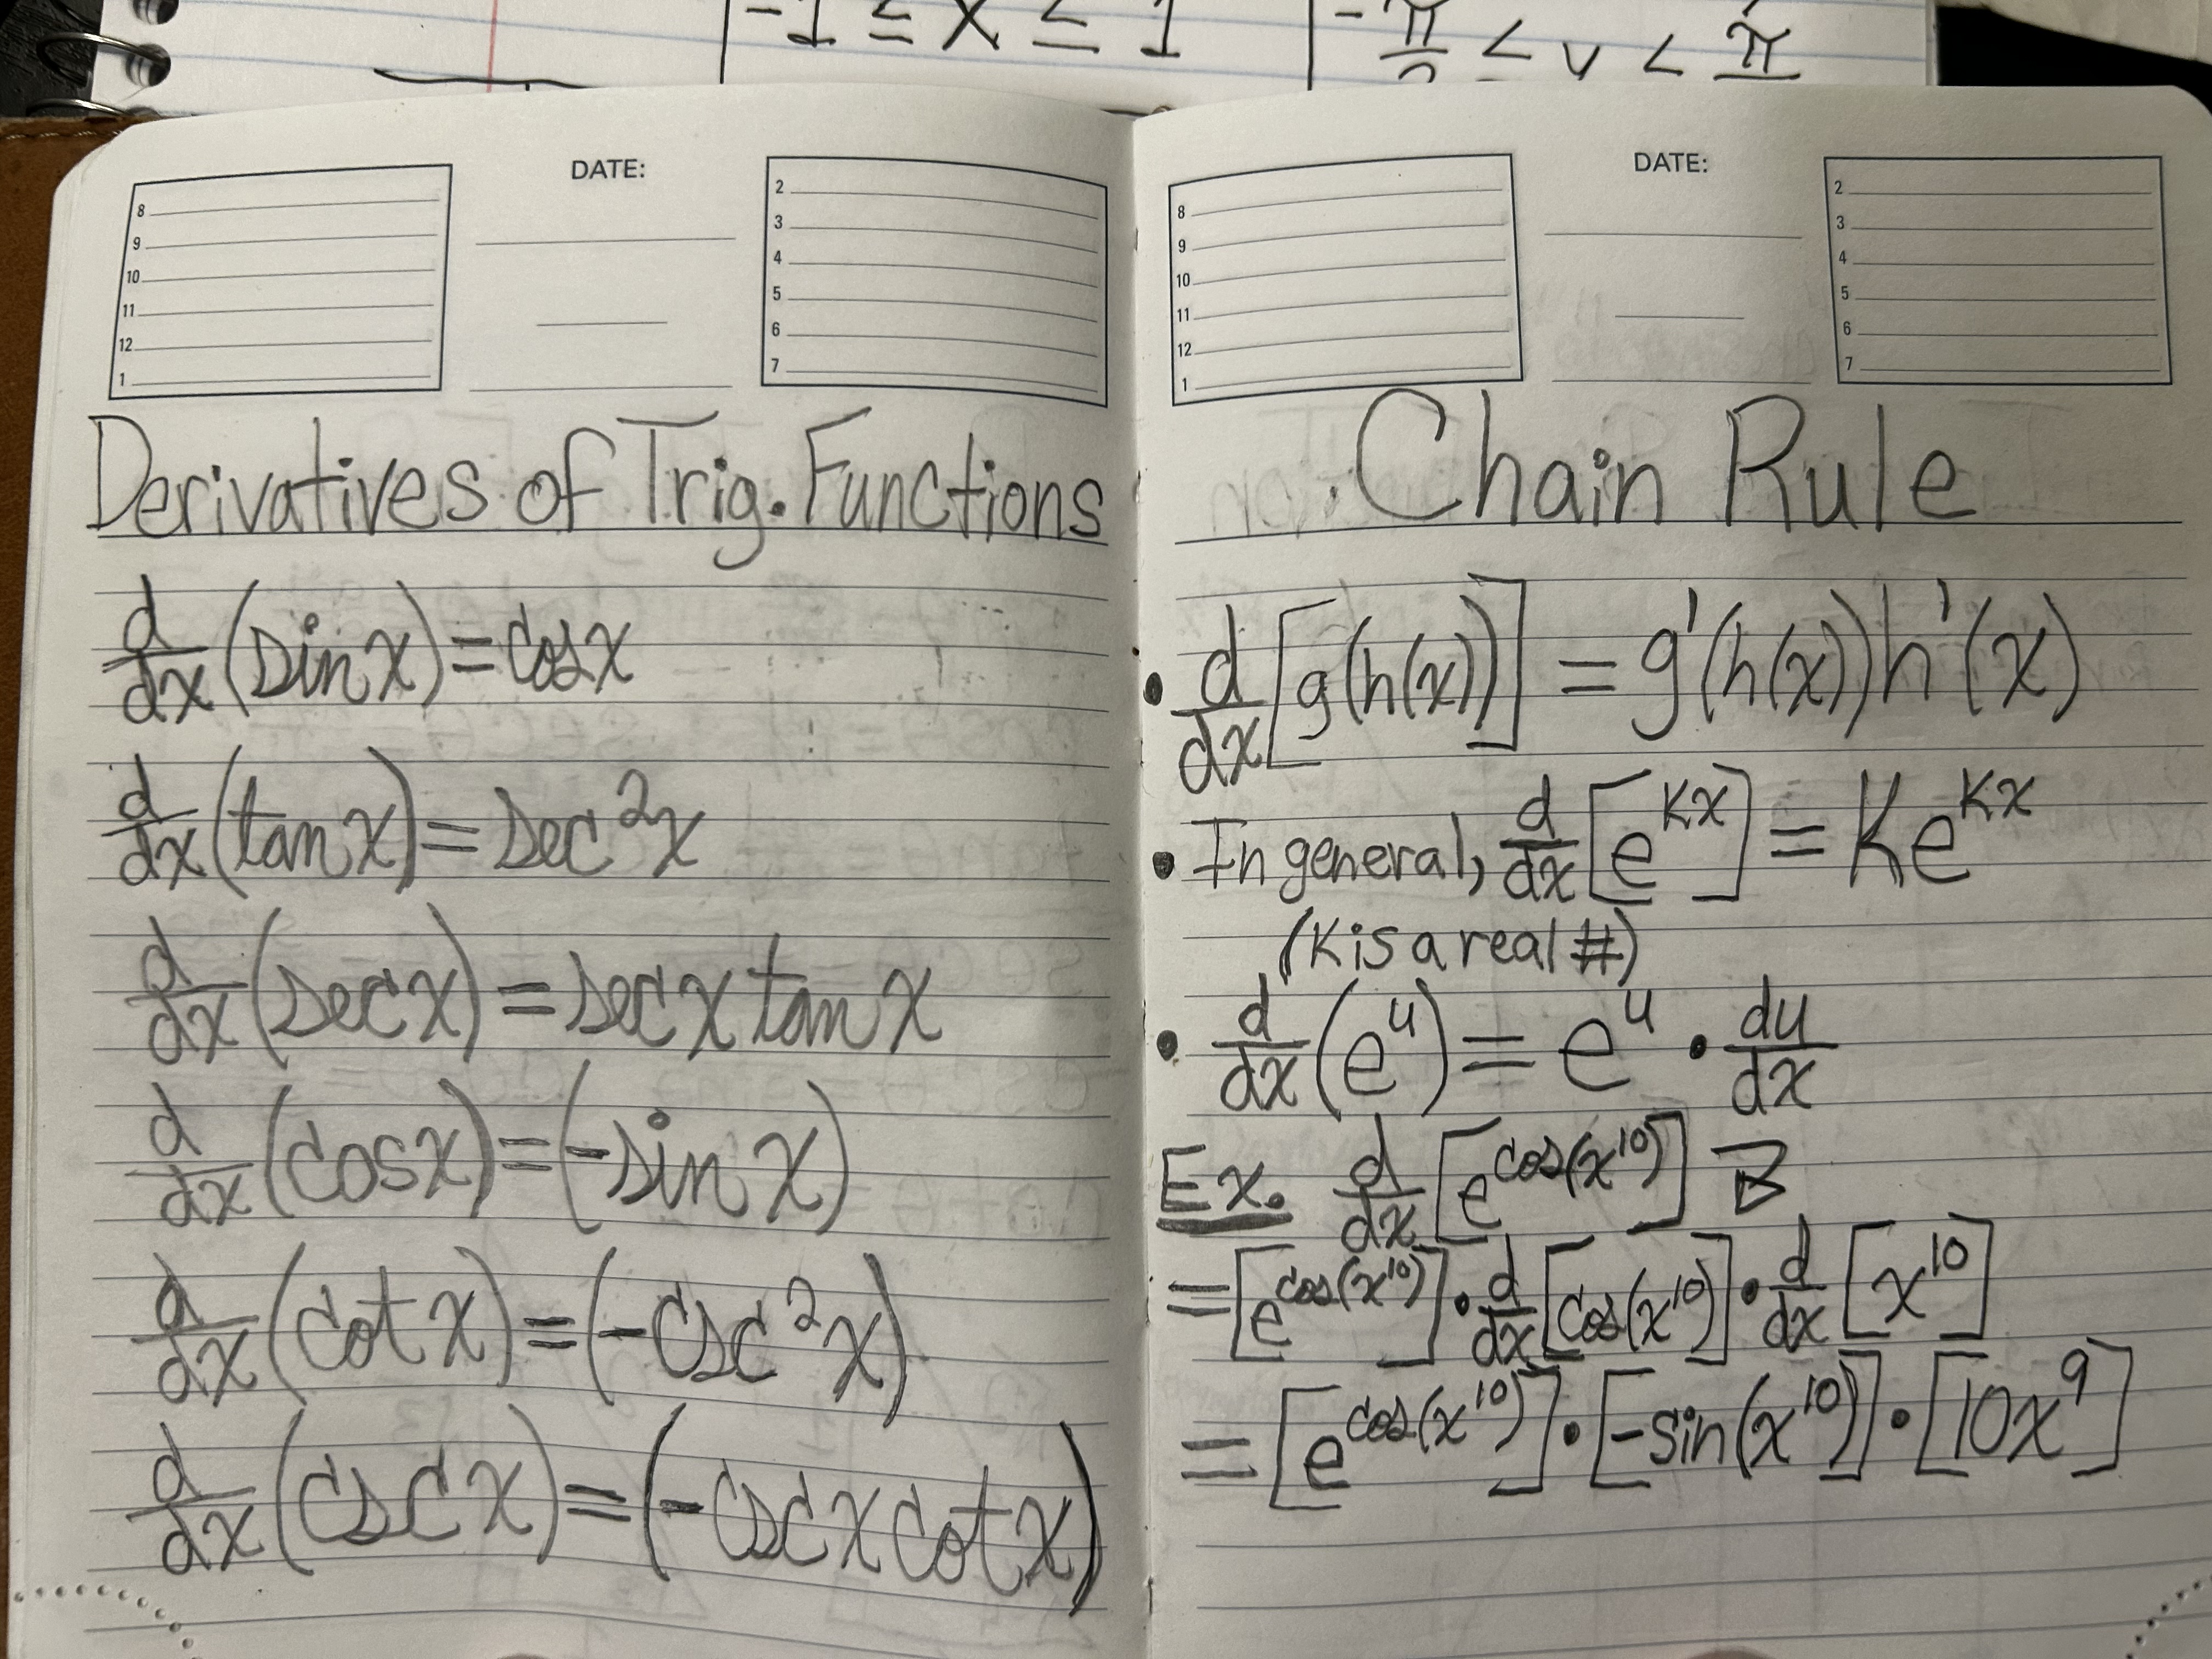 DATE:
8
9
10
11
12
1
2
3
4
5
6
7
Derivatives of Trig. Functions
d/dx (sin x) = cos x
d/dx (tan x) = sec²x
d/dx (sec x) = sec x tan x
d/dx (cos x) = (-sin x)
d/dx (cot x) = (-csc²x)
d/dx (csc x) = (-csc x cot x)
DATE:
8
9
10
11
12
1
2
3
4
5
6
7
Chain Rule
• d/dx [g(h(x))] = g'(h(x))h'(x)
• In general, d/dx [e^(kx)] = Ke^(kx)
(K is a real #)
• d/dx (e^u) = e^u • du/dx
Ex. d/dx [e^(cos(x^10))]
= [e^(cos(x^10))] • d/dx [cos(x^10)] • d/dx [x^10]
= [e^(cos(x^10))] • [-sin(x^10)] • [10x^9]
-1 ≤ x ≤ 1